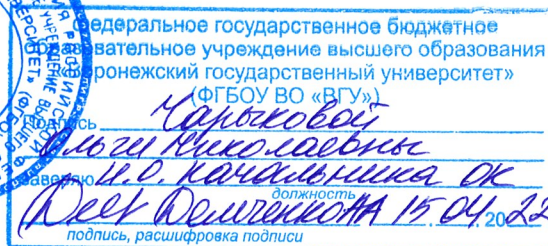 Федеральное государственное бюджетное
образовательное учреждение высшего образования
«Воронежский государственный университет»
(ФГБОУ ВО «ВГУ»)
Подпись Чарыковой
Ольги Николаевны
заверяю и.о. начальника ОК
должность
Демченко НА 15 04. 2022
подпись, расшифровка подписи